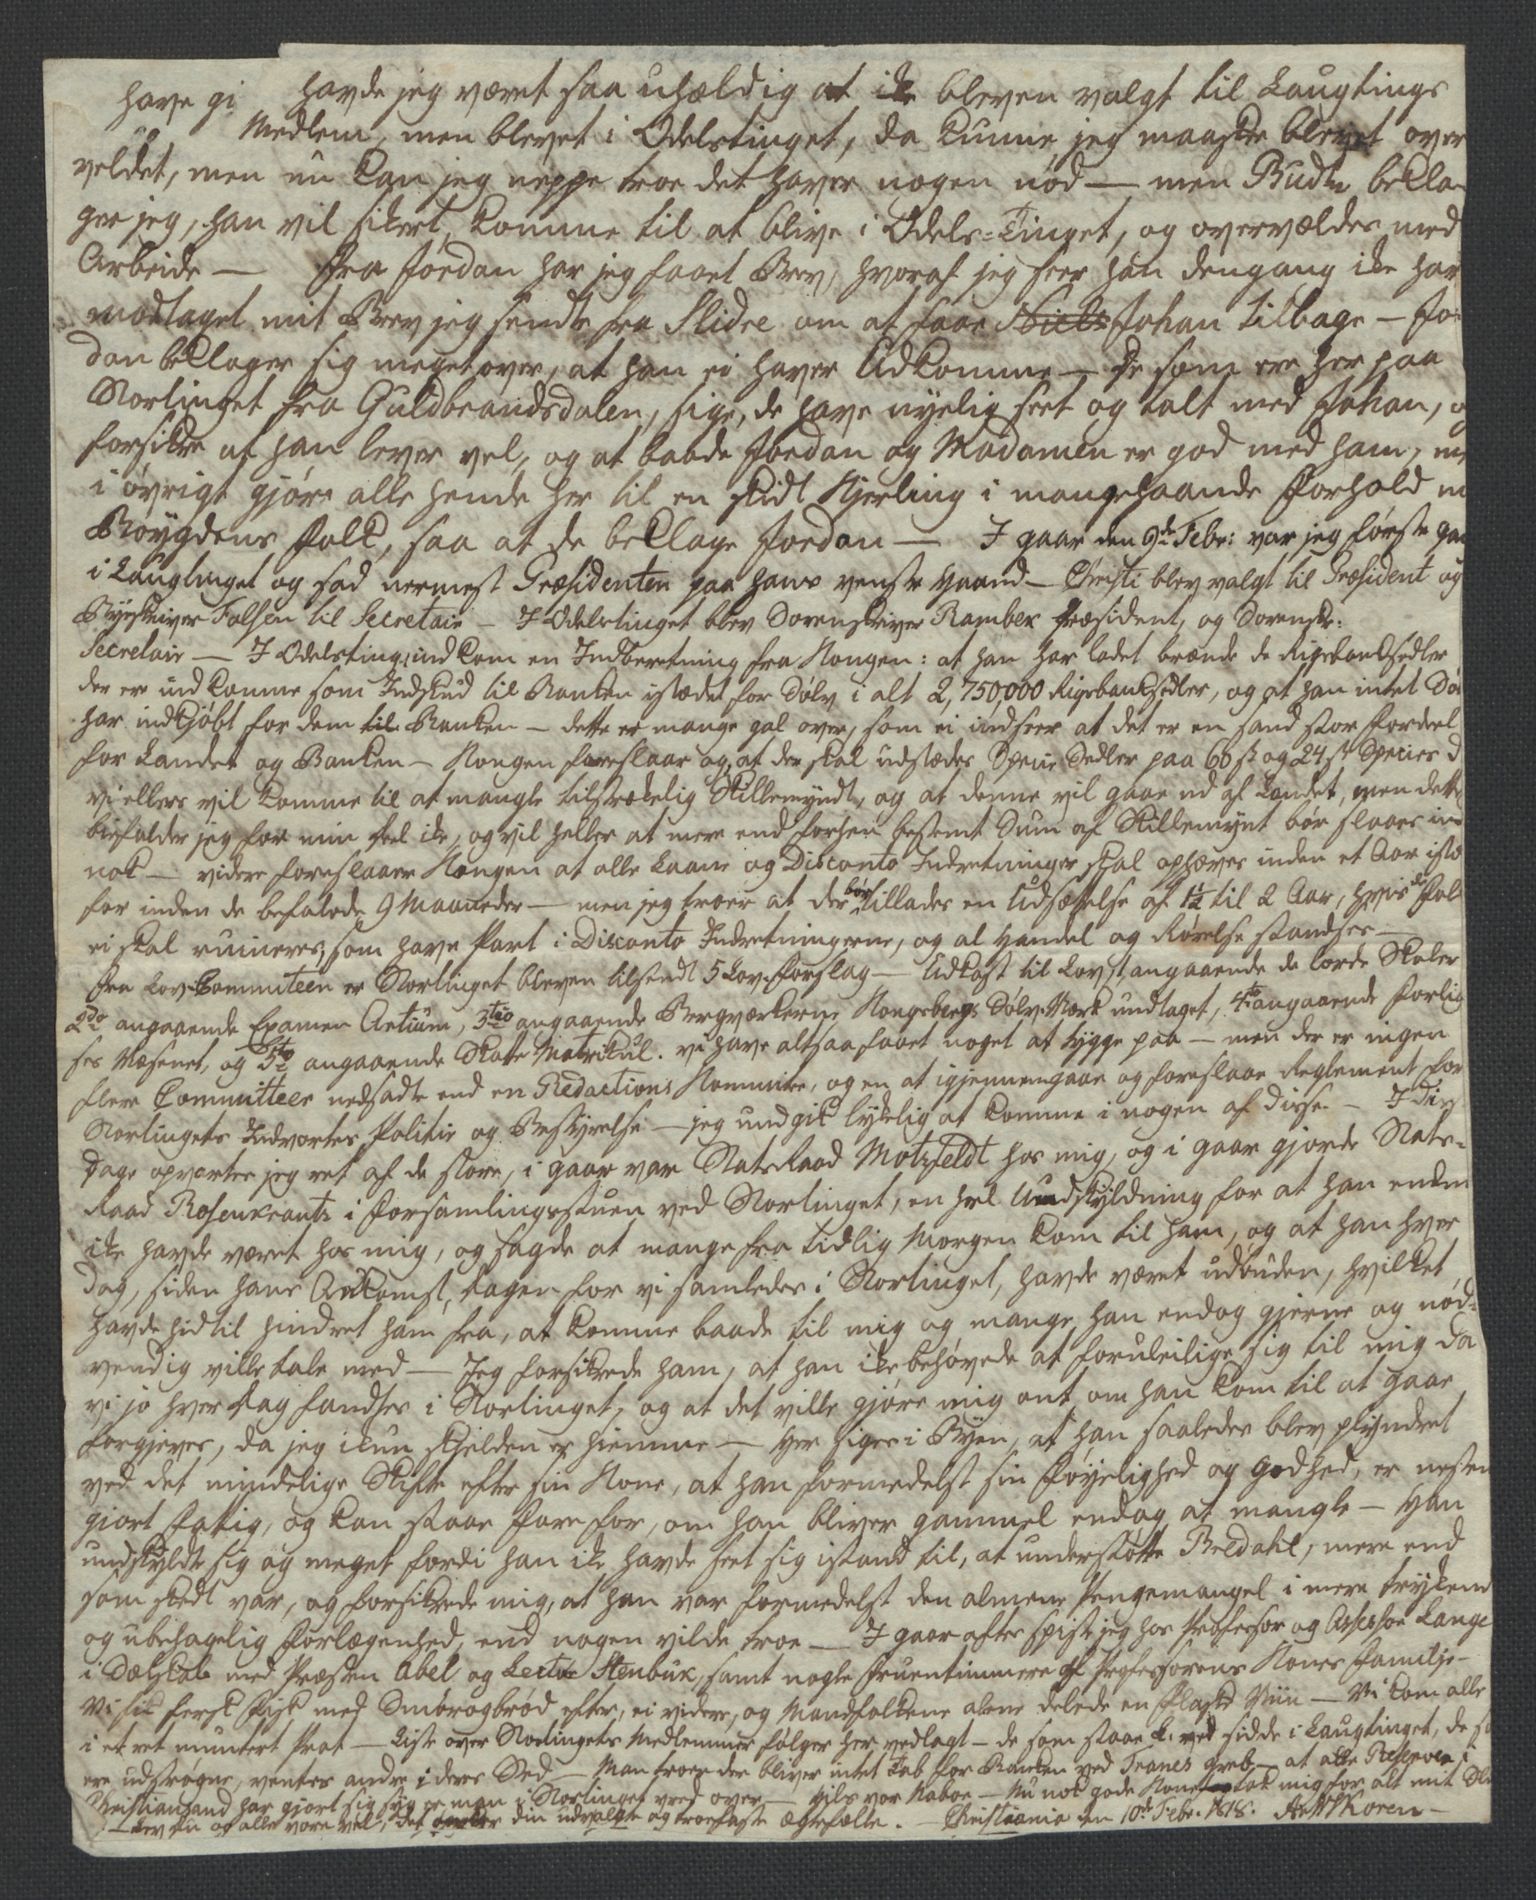 have gi havde jeg været saa uhældig at ike bleven valgt til Laugtings
Medlem, men blevet i Odelstinget, da kunne jeg maaske blevet over
veldet, men nu kan jeg neppe troe det haver nogen nød — men Budtz bekla-
ger jeg, han vil sikert komme til at blive i Odels-Tinget, og overvældes med
Arbeide — fra Jordan har jeg faaet Brev, hvoraf jeg seer han dengang ike har
modtaget mit Brev jeg sendte fra Slidre om at faae Niels Johan tilbage — Jor-
dan beklager sig meget over, at han ei haver Udkomme — De som ere her paa
Stortinget fra Guldbrandsdalen, sige, de have nyelig seet og talt med Johan, o
forsikre at han lever vel, og at baade Jordan og Madamen er god med ham, me
i øvrigt gjøre alle hende her til en skidt Kjerling i mangehaande Forhold m
Bøygdens Folk, saa at de beklage Jordan — I gaar den 9de Febr: var jeg første ga
i Laugtinget og sad nermest Præsidenten paa hans venstre Haand — Christi blev valgt til Præsident og
Byeskriver Falsen til Secretair — I Odelstinget blev Sorenskriver Rambek Præsident, og Sorenskr:
Secretair — I Odelsting: ind kom en Indberetning fra Kongen: at han har ladet brænde de Rigsbanksedler
der ere ind komne som Indskud til Banken istædet for Sølv i alt 2,750,000 Rigsbanksedler, og at han intet Søl
har indkjøbt for dem til Banken — dette er mange gal over, som ei indseer at det er en sand stor Fordeel
for Landet og Banken — Kongen foreslaar og, at der skal udstædes Specie Sedler paa 60 ß og 24 ß Species d
vi ellers vil komme til at mangle tilstrækelig Skillemyndt, og at denne vil gaae ud af Landet, men dette
bifalder jeg for min Deel ike, og vil heller at mere end forhen bestemt Sum af Skillemynt bør slaaes in
nok — videre foreslaaer Kongen at alle Laane og Disconto Indretninger skal ophæves inden et Aar istæ
for inden de befalede 9 Maaneder — men jeg troer at der bør tillades en Udsættelse af 1½ til 2 Aar, hvis de Fol
ei skal ruineres, som have Part i Disconto Indretningerne, og al Handel og Rørelse standses —
Fra Lov-Committeen er Stortinget bleven tilsendt 5 Lov-Forslag — Udkast til Lov 1 angaaende de lærde Skoler
2do angaaende Examen Artium, 3tio angaaende Bergværkerne Kongsbergs Sølv-Værk undtaget, 4to angaaende Forlig
ses Væsenet, og 5to angaaende Skatte Matrikul. vi have altsaa faaet noget at tygge paa — men der er ingen
flere Committeer nedsadte end en Redactions Kommitee, og en at igjennemgaae og foreslaae Reglement for
Stortingets Indvortes Politie og Bestyrelse — jeg undgik lykelig at komme i nogen af disse — I disse
Dage opvarter jeg ret af de store, i gaar var StatsRaad Motzfeldt hos mig, og i gaar gjorde Stats-
Raad Rosenkrantz i Forsamlingsstuen ved Stortinget, en hel Undskyldning for at han endnu
ike havde været hos mig, og sagde at mange fra tidlig Morgen kom til ham, og at han hver
Dag, siden hans Ankomst, Dagen for vi samledes i Stortinget, havde været udbuden, hvilket
havde hidtil hindret ham fra, at komme baade til mig og mange, han endog gjerne og nød-
vendig ville tale med — Jeg forsikrede ham, at han ike behøvede at foruleilige sig til mig da
vi jo hver Dag fandtes i Stortinget, og at det ville gjøre mig ont, om han kom til at gaae
forgjeves, da jeg ikun skjelden er hiemme — Her siges i Byen, at han saaledes blev plyndret
ved det mindelige Skifte efter sin Kone, at han formedelst sin Føyelighed og Godhed, er nesten
giort fatig, og kan staae fare for, om han bliver gammel endog at mangle — Han
undskyldte sig og meget fordi han ike havde seet sig istand til, at understøtte Bredahl, mere end
som skedt var, og forsikrede mig, at han var formedelst den almene Pengemangel i mere trykkend
og ubehagelig Forlægenhed, end nogen vilde troe — I gaar aftes spiste jeg hos Professor og Assessor Lange
i Selskab med Præsten Abel og Lector Stenbuk, samt nogle Fruentimmere af Professorens Kones Familje —
Vi fik fersk Fisk med Smørogbrød efter, ei videre, og Mandfolkene alene delede en Flaske Viin — Vi kom alle
i et ret muntert Prat — Liste over Stortingets Medlemmer følger her vedlagt — de som staae L. ved sidde i Laugtinget, de s
ere udstrøgne, ventes andre i deres Sted — Man troer der bliver intet Tab for Banken ved Tranes Greb — at alle
Christiansand har gjort sig syge er man i Stortinget vred over — Hils vor Naboe — Nu nok gode Kone tak mig for alt mit
Lev du og alle vore vel, det ønsker din udvalgte og troefaste Ægtefælle. — Christiania den 10de Febr. 1818. Koren —